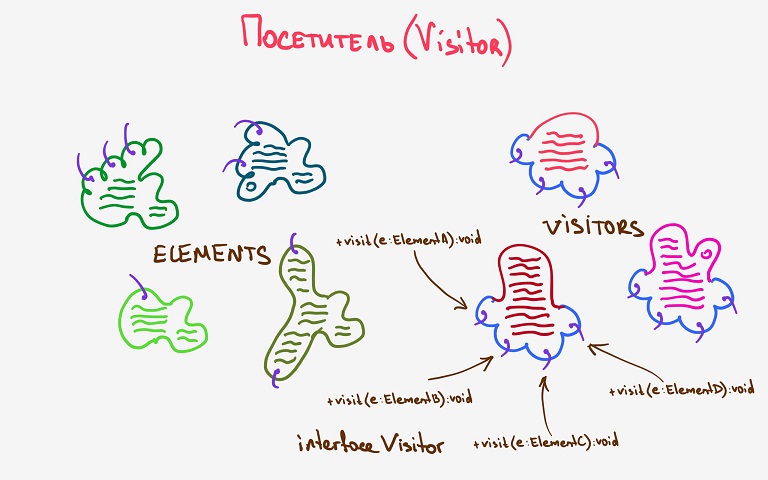 Посетитель (Visitor)
ELEMENTS
VISITORS
+visit(e:ElementA):void
+visit(e:ElementB):void
+visit(e:ElementD):void
+visit(e:ElementC):void
interface Visitor